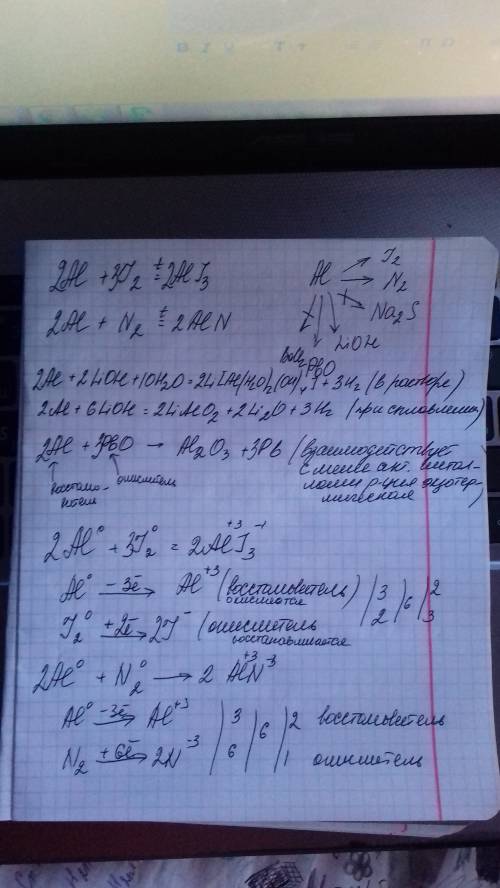 2Al + 3J₂ =ᵗ 2AlJ₃
Al → J₂
→ N₂
Na₂S
LiOH
PbO
2Al + N₂ =ᵗ 2AlN
2Al+2LiOH+10H₂O=2Li[Al(H₂O)₂(OH)₄]+3H₂ (в растворе)
2Al+6LiOH=2LiAlO₂+2Li₂O+3H₂ (при сплавлении)
2Al + 3PbO → Al₂O₃ + 3Pb (взаимодействует
с менее акт. метал-
лами р-ция экзотер-
мическая)
восстано-
витель
окислитель
2Al⁰ + 3J₂⁰ = 2Al⁺³J₃⁻¹
Al⁰ –3ē→ Al⁺³ (восстановитель) | 3 | 6 | 2
окисляется
J₂⁰ +2ē→ 2J⁻ (окислитель | 2 | | 3
восстанавливается
2Al⁰ + N₂⁰ → 2 Al⁺³N⁻³
Al⁰ –3ē→ Al⁺³ | 3 | 6 | 2 восстановитель
N₂ +6ē→ 2N⁻³ | 6 | | 1 окислитель